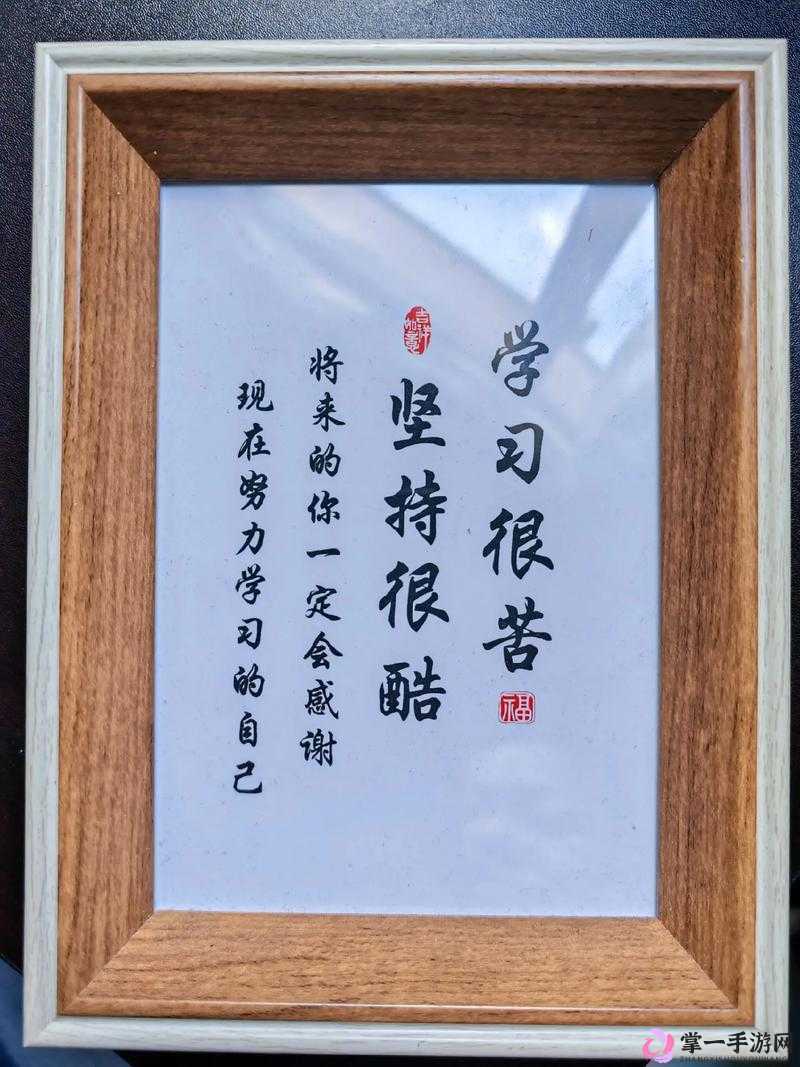 学习很苦
福
吉祥如意
坚持很酷
将来的你一定会感谢
现在努力学习的自己
掌一手游网
ZHANGYISHOUYOUWANG